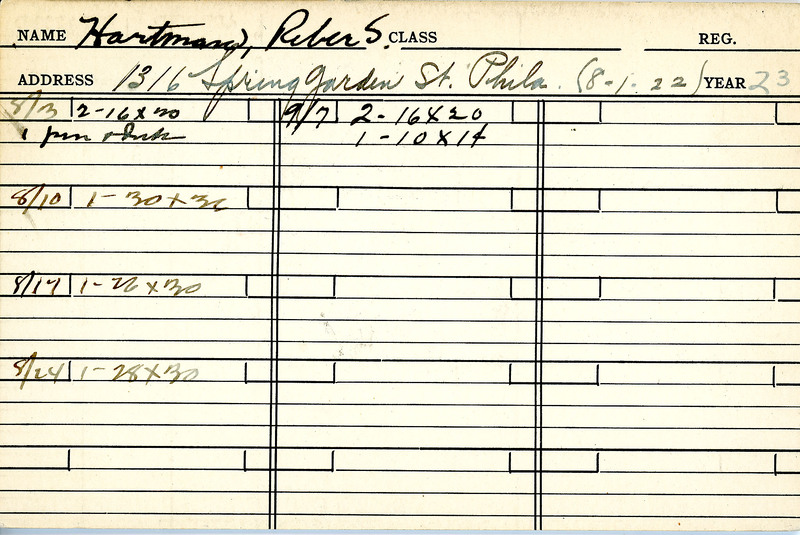 NAME Hartman, Reber S. CLASS REG.
ADDRESS 1316 Spring Garden St. Phila. (8-1-22) YEAR 23
8/3 2-16x20
1 pen
9/7 2-16x20
1-10x14
8/10 1-30x36
8/17 1-26x30
8/24 1-28x30